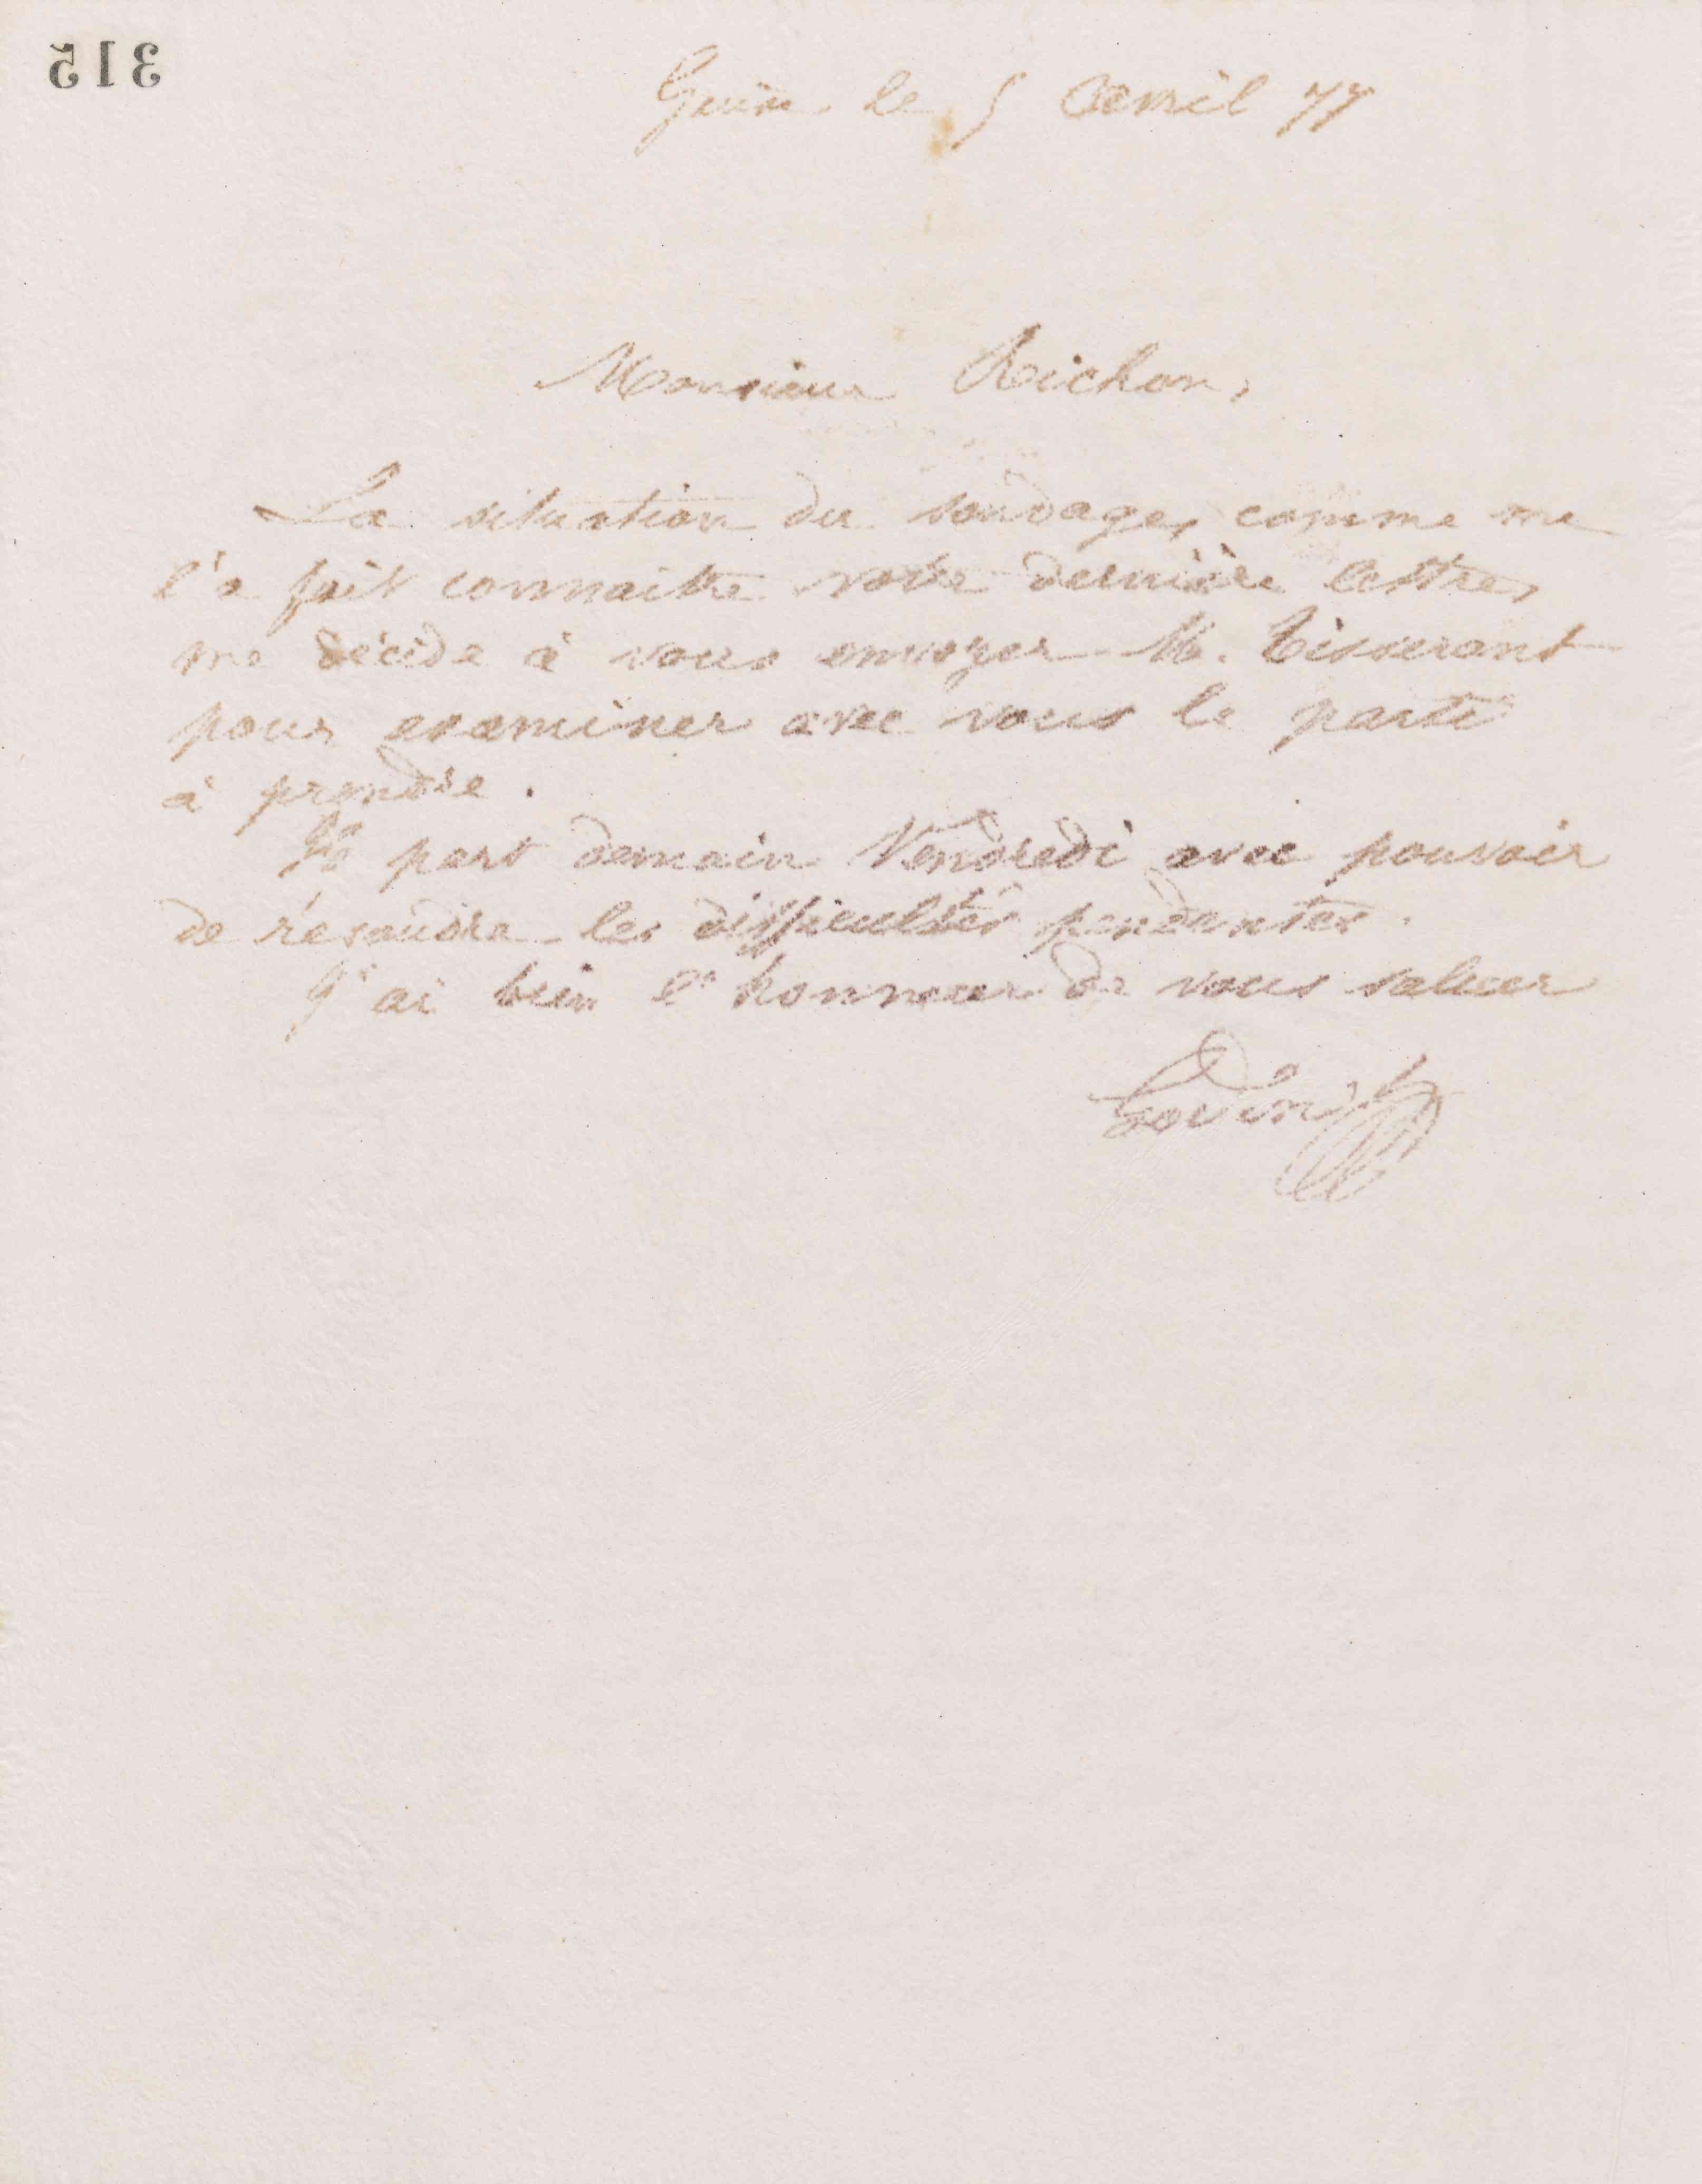 315
Guise le 5 Avril 77
Monsieur Richon,
La situation du sondage, comme me
l'a fait connaitre votre dernière lettre,
me décide à vous envoyer M. Tisserant
pour examiner avec vous le parti
à prendre.
Il part demain Vendredi avec pouvoir
de résoudre les difficultés pendantes.
J'ai bien l'honneur de vous saluer
Godin